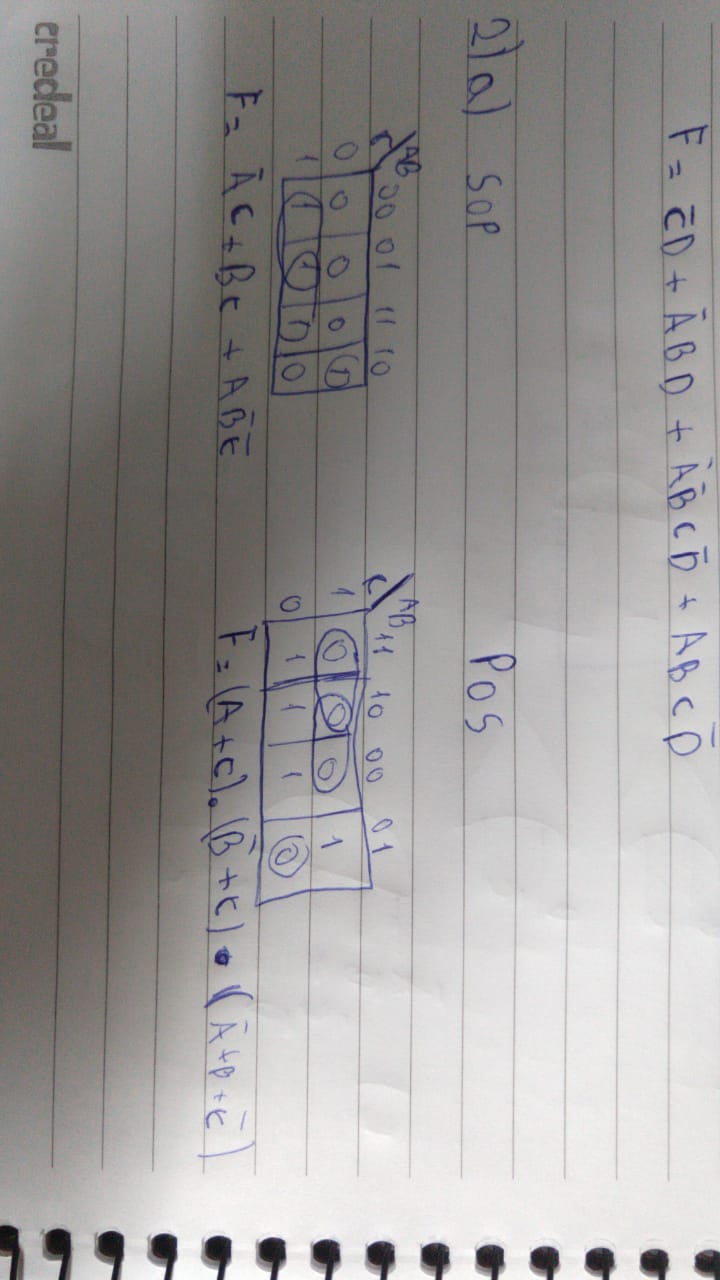 F = C̄D + ĀBD + ĀB̄CD̄ + ABCD̄
2) a) SOP
POS
C\AB 00 01 11 10
0 0 0 0 1
1 1 1 1 0
F = ĀC + BC + AB̄C̄
C\AB 11 10 00 01
1 0 0 0 1
0 1 1 1 0
F = (A+C).(B̄+C).(Ā+B+C̄)
credeal